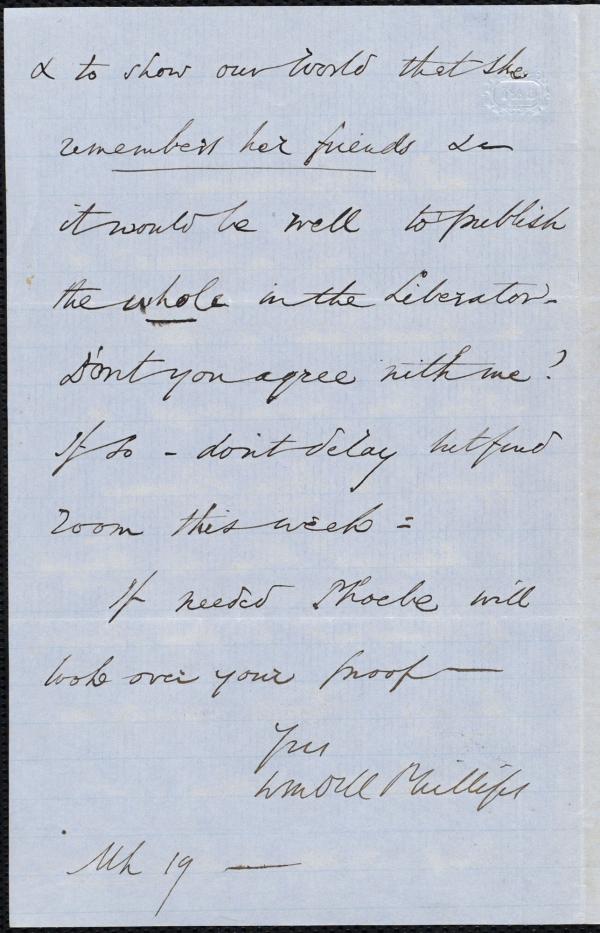 & to show our world that she
remembers her friends &c
it would be well to publish
the whole in the Liberator.
Dont you agree with me?
If so - dont delay but find
room this week =
If needed Phoebe will
look over your proof —
Yrs
Wendell Phillips
Mh 19 —